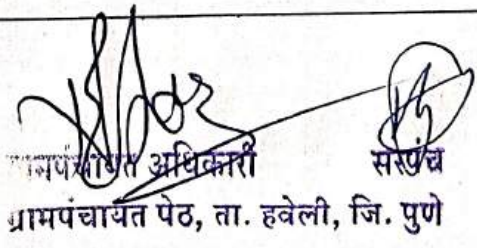 ग्रामपंचायत अधिकारी सरपंच
ग्रामपंचायत पेठ, ता. हवेली, जि. पुणे